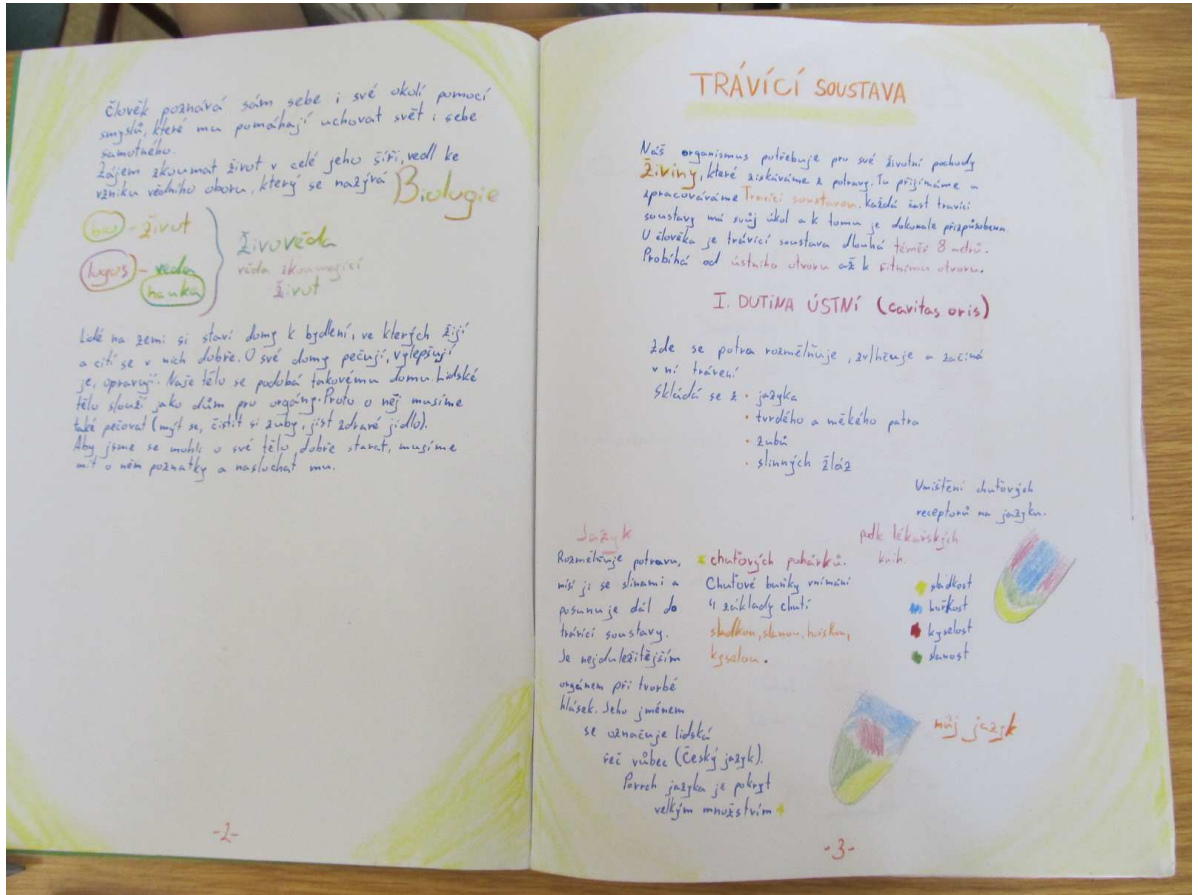 člověk poznává sám sebe i své okolí pomocí
smyslů, které mu pomáhají uchovat svět i sebe
samotného.
Zájem zkoumat život v celé jeho šíři, vedl ke
vzniku vědního oboru, který se nazývá Biologie
bio - život
logos - věda
nauka
Živověda
věda zkoumající
život
Lidé na zemi si staví domy k bydlení, ve kterých žijí
a cítí se v nich dobře. O své domy pečují, vylepšují
je, opravují. Naše tělo se podobá takovému domu. Lidské
tělo slouží jako dům pro orgány. Proto o něj musíme
také pečovat (mýt se, čistit si zuby, jíst zdravé jídlo).
Aby jsme se mohli o své tělo dobře starat, musíme
mít o něm poznatky a naslouchat mu.
-2-
TRÁVÍCÍ SOUSTAVA
Náš organismus potřebuje pro své životní pochody
živiny, které získáváme z potravy. Tu přijímáme a
zpracováváme Trávící soustavou. Každá část trávící
soustavy má svůj úkol a k tomu je dokonale přizpůsobena.
U člověka je trávící soustava dlouhá téměř 8 metrů.
Probíhá od ústního otvoru až k řitnímu otvoru.
I. DUTINA ÚSTNÍ (cavitas oris)
Zde se potra rozmělňuje, zvlhčuje a začíná
v ní trávení
Skládá se z • jazyka
• tvrdého a měkého patra
• zubů
• slinných žláz
Jazyk
Rozmělňuje potravu,
mísí ji se slinami a
posunuje dál do
trávící soustavy.
Je nejdůležitějším
orgánem při tvorbě
hlásek. Jeho jménem
se označuje lidská
řeč vůbec (Český jazyk).
Povrch jazyka je pokryt
velkým množstvím
chuťových pohárků.
Chuťové buňky vnímání
4 základy chutí
sladkou, slanou, hořskou,
kyselou.
Umístění chuťových
receptorů na jazyku.
podle lékařských
knih.
sladkost
hořkost
kyselost
slanost
můj jazyk
-3-